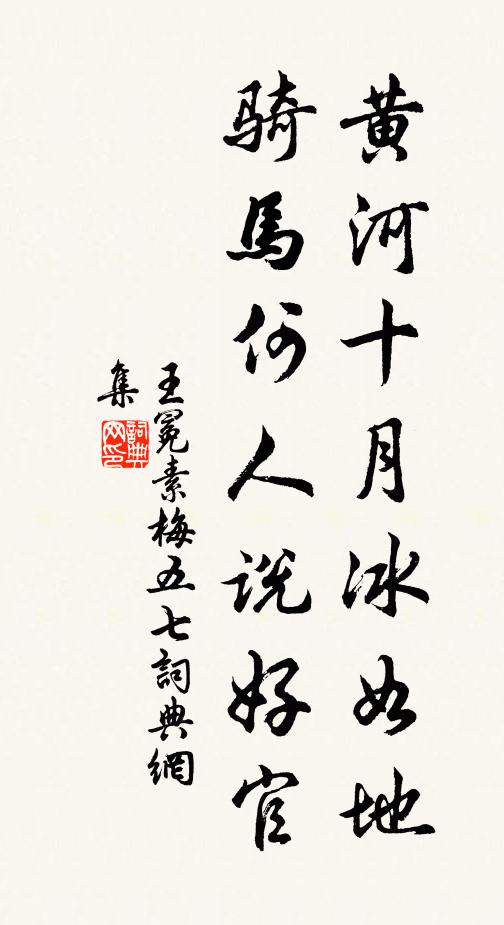 黄河十月冰如地
騎馬何人说好官
王冕素梅五七詞典網
集
詞典
网印